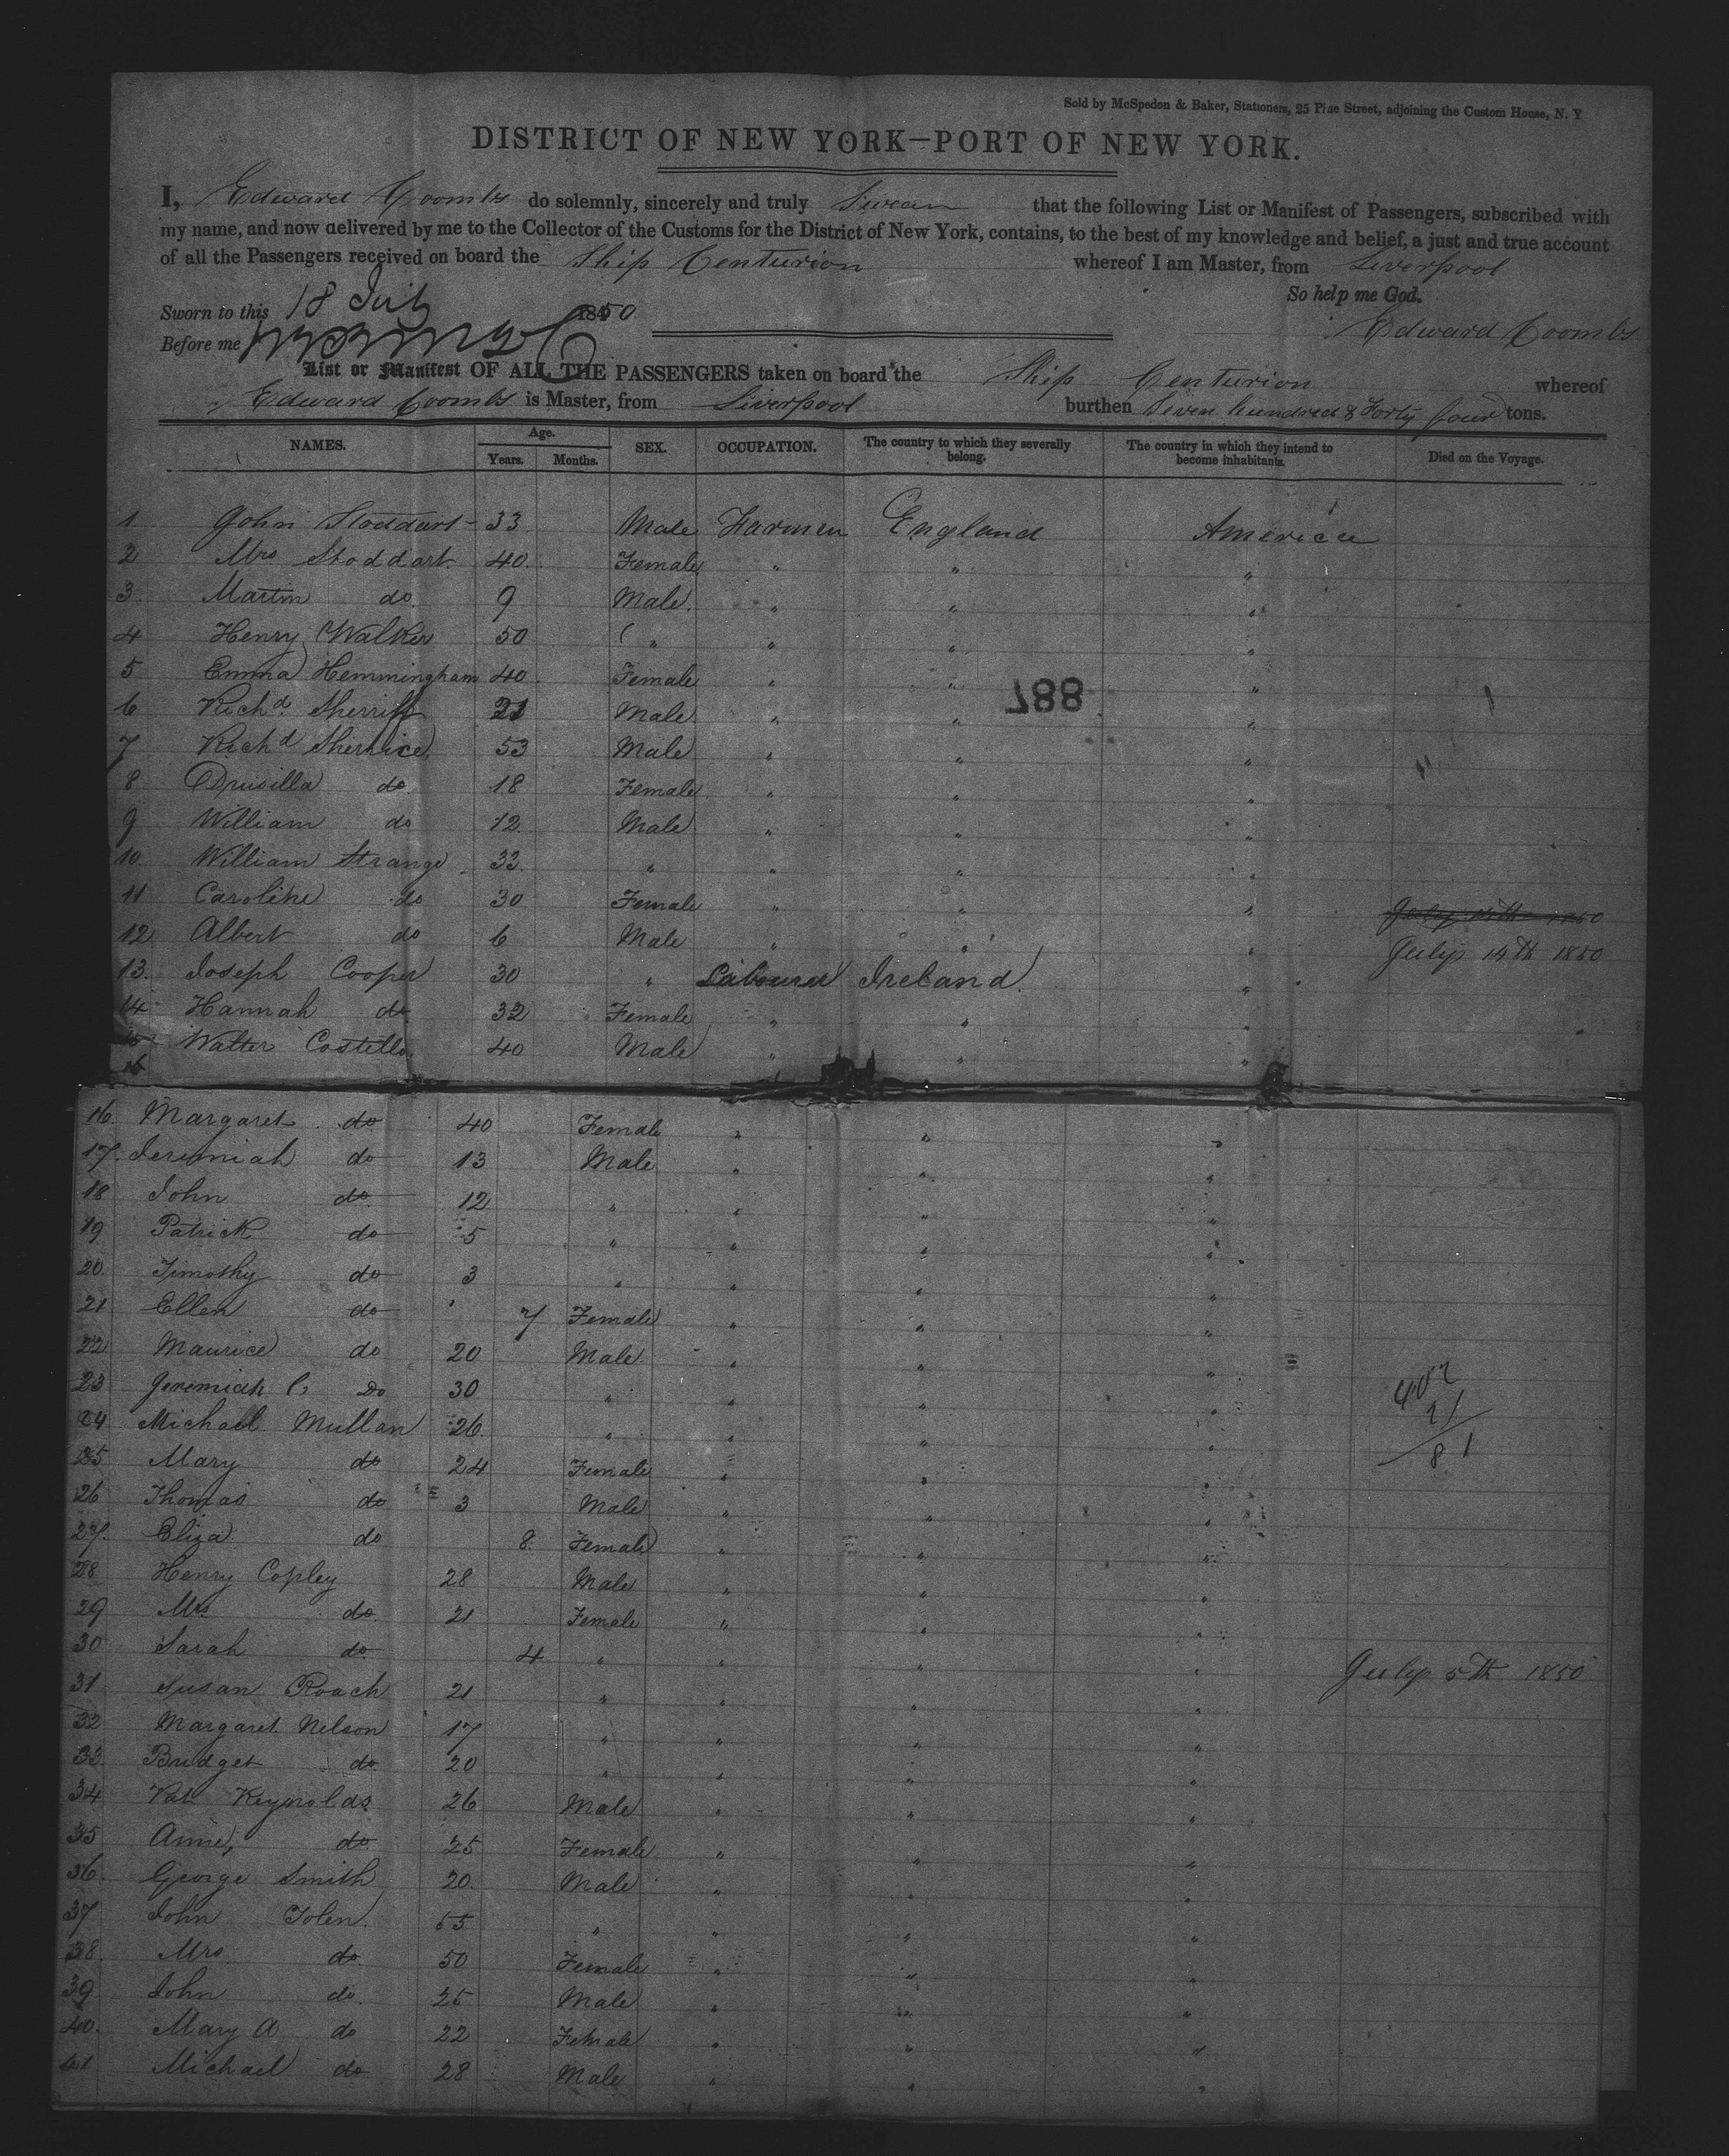 Sold by McSpedon & Baker, Stationers, 25 Pine Street, adjoining the Custom House, N. Y
DISTRICT OF NEW YORK—PORT OF NEW YORK.
I, Edward Coombs do solemnly, sincerely and truly Swear that the following List or Manifest of Passengers, subscribed with
my name, and now delivered by me to the Collector of the Customs for the District of New York, contains, to the best of my knowledge and belief, a just and true account
of all the Passengers received on board the Ship Centurion whereof I am Master, from Liverpool
So help me God.
Sworn to this 18 July 1850
Edward Coombs
Before me
List or Manifest OF ALL THE PASSENGERS taken on board the Ship Centurion whereof
Edward Coombs is Master, from Liverpool burthen Seven hundred & Forty four tons.
NAMES. Age. Years. Months. SEX. OCCUPATION. The country to which they severally belong. The country in which they intend to become inhabitants. Died on the Voyage.
1 John Stoddart 33 Male Farmer England America
2 Mrs Stoddart 40 Female " " "
3 Martin do 9 Male " " "
4 Henry Walker 50 " " " "
5 Emma Hemmingham 40 Female " " "
788
6 Richd Sherriff 21 Male " " "
7 Richd 53 Male " " "
8 Drusilla do 18 Female " " "
9 William do 12 Male " " "
10 William Strange 33 " " " "
11 Caroline do 30 Female " " "
12 Albert do 6 Male " " " July 14th 1850
13 Joseph Cooper 30 " Labourer Ireland "
14 Hannah do 32 Female " " "
15 Walter Costello 40 Male " " "
16
16 Margaret do 40 Female " " "
17 Jeremiah do 13 Male " " "
18 John do 12 " " " "
19 Patrick do 5 " " " "
20 Timothy do 3 " " " "
21 Ellen do 7 Female " " "
22 Maurice do 20 Male " " "
23 Jeremiah C. Do 30 " " " "
24 Michael Mullan 26 " " " "
25 Mary do 24 Female " " "
26 Thomas do 3 Male " " "
27 Eliza do 8 Female " " "
28 Henry Copley 28 Male " " "
29 Mrs do 21 Female " " "
30 Sarah do 4 " " " " July 5th 1850
31 Susan Roach 21 " " " "
32 Margaret Nelson 17 " " " "
33 Bridget do 20 " " " "
34 Pat Reynolds 26 Male " " "
35 Anne, do 25 Female " " "
36 George Smith 20 Male " " "
37 John Tolen 55 " " " "
38 Mrs do 50 Female " " "
39 John do 25 Male " " "
40 Mary A do 22 Female " " "
41 Michael do 28 Male " " "